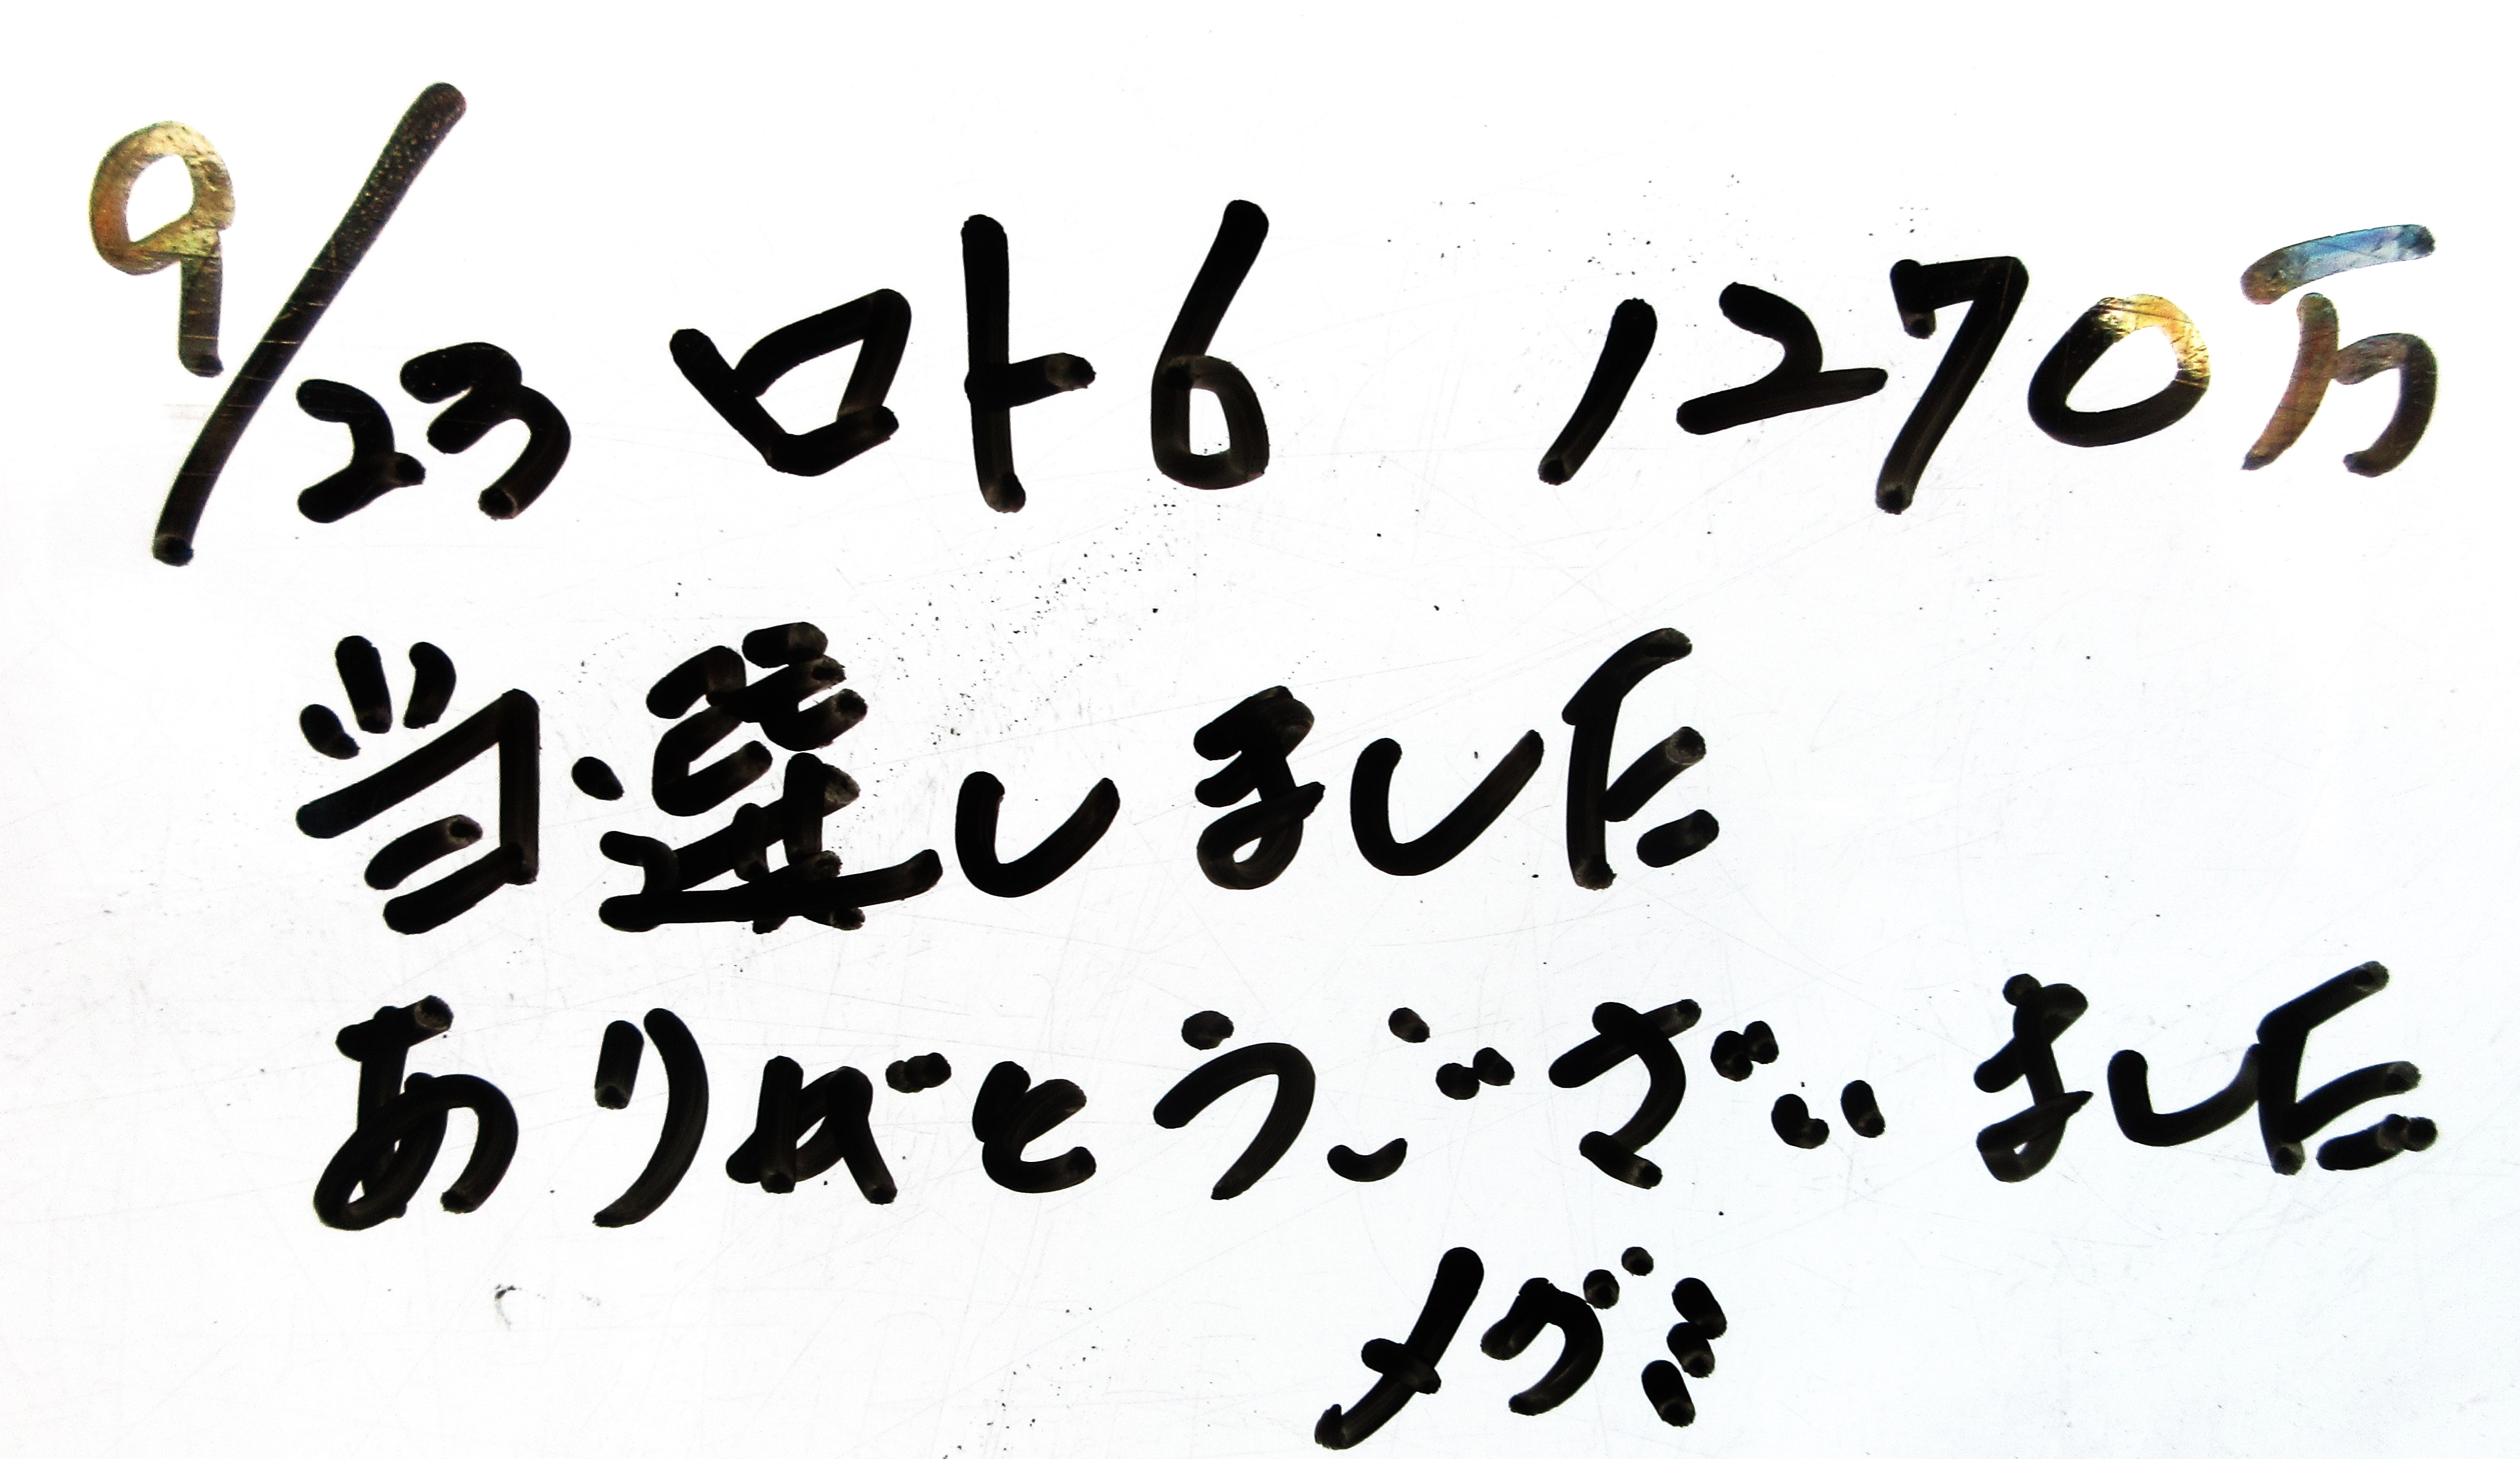 9/23 ロト6 1270万
当選しました
ありがとうございました
メグミ